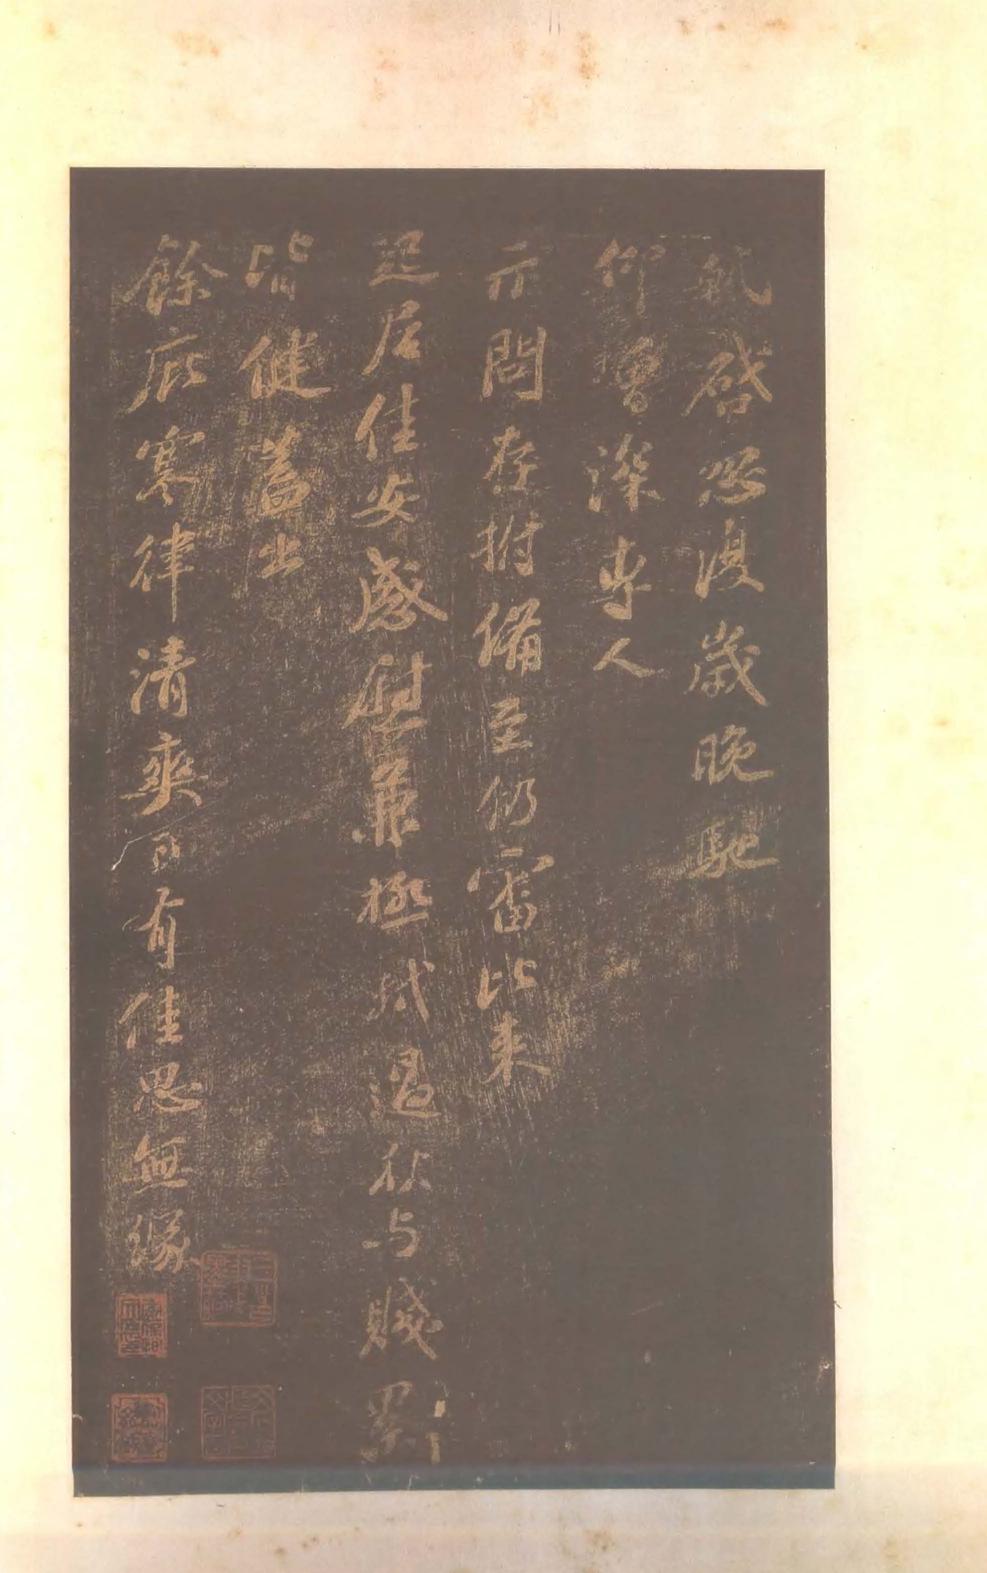 軾啓忽復歲晚馳
仰增深專人
示問存拊備至仍審比來
起居佳安感慰兼極軾過秋與賤累
皆健蓋出
餘庇寒律清爽日有佳思無緣